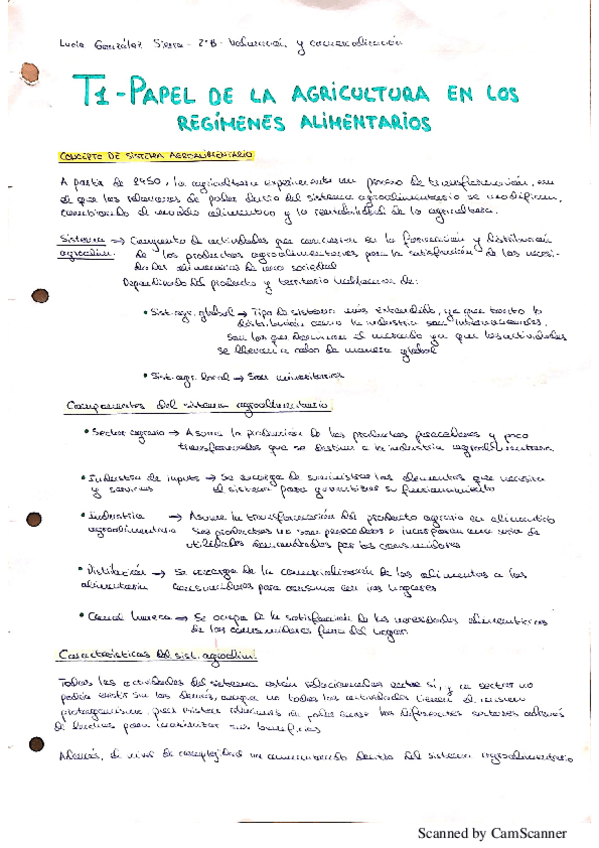 Lucía González Sierra - 2ºB - Valoración y comercialización
T1 - PAPEL DE LA AGRICULTURA EN LOS
REGÍMENES ALIMENTARIOS
CONCEPTO DE SISTEMA AGROALIMENTARIO
A partir de 1950, la agricultura experimenta un proceso de transformación, en
el que las relaciones de poder dentro del sistema agroalimentario se modifican,
cambiando el modelo alimentario y la rentabilidad de la agricultura.
Sistema → Conjunto de actividades que concursan en la formación y distribución
agroalim. de los productos agroalimentarios para la satisfacción de las necesi-
dades alimenticias de una sociedad
Dependiendo del producto y territorio hablamos de:
• Sist. agr. global → Tipo de sistema más extendido, ya que tanto la
distribución como la industria son internacionales.
Son los que dominan el mercado ya que las actividades
se llevan a cabo de manera global
• Sist. agr. local → Son minoritarios
Componentes del sistema agroalimentario
• Sector agrario → Asume la producción de los productos perecederos y poco
transformados que se destinan a la industria agroalimentaria
• Industria de inputs → Se encarga de suministrar los elementos que necesita
y servicios el sistema para garantizar su funcionamiento
• Industria → Asume la transformación del producto agrario en alimenticio
agroalimentaria Sus productos no son perecederos e incorporan una serie de
utilidades demandadas por los consumidores
• Distribución → Se encarga de la comercialización de los alimentos a los
alimentaria consumidores para consumo en los hogares
• Canal horeca → Se ocupa de la satisfacción de las necesidades alimenticias
de los consumidores fuera del hogar
Características del sist. agroalim.
Todas las actividades del sistema están relacionadas entre sí, y un sector no
podría existir sin los demás, aunque no todas las actividades tienen el mismo
protagonismo, pues existen relaciones de poder entre los diferentes sectores
de para maximizar sus beneficios
Además, el nivel de complejidad va aumentando dentro del sistema agroalimentario
Scanned by CamScanner